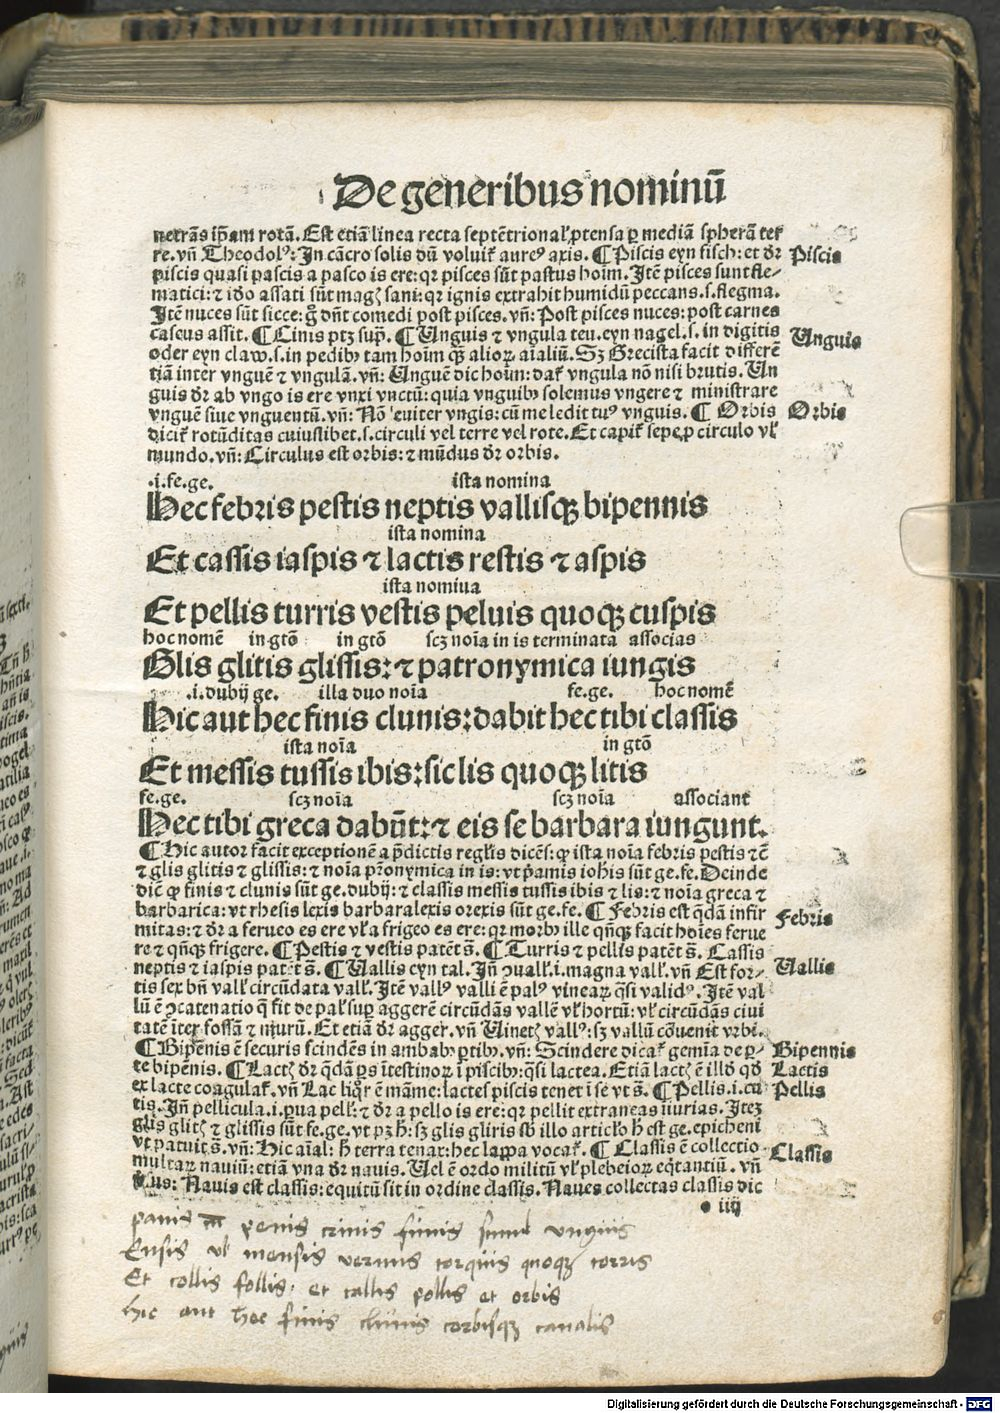 De generibus nominũ
netrãs ip̃am rotã. Est etiã linea recta septẽtrional' ꝓtensa ꝑ mediã spherã ter
re. vñ Theodolꝰ: In cãcro solis dũ voluit᷑ aureꝰ axis. ¶ Piscis eyn fisch: et dr̃
piscis quasi pascis a pasco is ere: qr pisces sũt pastus hoim̃. Itẽ pisces sunt fle⸗
matici: ⁊ iđo assati sũt magꝭ sani: qr ignis extrahit humidũ peccans .s. flegma.
Itẽ nuces sũt sicce: g̊ dñt comedi post pisces. vñ: Post pisces nuces: post carnes
caseus assit. ¶ Cinis ptꝫ sup̃. ¶ Unguis ⁊ vngula teu. eyn nagel .s. in digitis
oder eyn claw .s. in pedibꝰ tam hoim̃ qꝫ alioꝝ aialiũ. Sꝫ Grecista facit differẽ
tiã inter vnguẽ ⁊ vngulã. vñ: Unguẽ dic hoim̃: dat᷑ vngula nõ nisi brutis. Un
guis dr̃ ab vngo is ere vnxi vnctũ: quia vnguibꝰ solemus vngere ⁊ ministrare
vnguẽ siue vnguentũ. vñ: Nõ leuiter vngis: cũ me ledit tuꝰ vnguis. ¶ Orbis
dicit᷑ rotũditas cuiuslibet .s. circuli vel terre vel rote. Et capit᷑ sepe ꝓ circulo vl'
mundo. vñ: Circulus est orbis: ⁊ mũdus dr̃ orbis.
Piscis
Unguis
Orbis
.i. fe. ge. ista nomina
Hec febris pestis neptis vallisqꝫ bipennis
ista nomina
Et cassis iaspis ⁊ lactis restis ⁊ aspis
ista nomiua
Et pellis turris vestis peluis quoqꝫ cuspis
hoc nomẽ in gtõ in gtõ scꝫ noĩa in is terminata associas
Glis glitis glissis: ⁊ patronymica iungis
.i. dubij ge. illa duo noĩa fe. ge. hoc nomẽ
Hic aut hec finis clunis: dabit hec tibi classis
ista noĩa in gtõ
Et messis tussis ibis: sic lis quoqꝫ litis
fe. ge. scꝫ noĩa scꝫ noĩa associant
Hec tibi greca dabũt: ⁊ eis se barbara iungunt.
¶ Hic autor facit exceptionẽ a p̃dictis regl'is dicẽs: ꝙ ista noĩa febris pestis ⁊c̃
⁊ glis glitis ⁊ glissis: ⁊ noĩa pr̃onymica in is: vt p̃amis iohis sũt ge. fe. Deinde
dic̃ ꝙ finis ⁊ clunis sũt ge. dubij: ⁊ classis messis tussis ibis ⁊ lis: ⁊ noĩa greca ⁊
barbarica: vt rhesis lexis barbaralexis orexis sũt ge. fe. ¶ Febris est qđã infir
mitas: ⁊ dr̃ a ferueo es ere vl' a frigeo es ere: qr morbꝰ ille qñqꝫ facit hoĩes ferue
re ⁊ qñqꝫ frigere. ¶ Pestis ⁊ vestis patẽt s̃. ¶ Turris ⁊ pellis patẽt s̃. Cassis
neptis ⁊ iaspis patẽt s̃. ¶ Uallis eyn tal. Jñ ↄuall' .i. magna vall'. vñ Est for⸗
tis sex bñ vall' circũdata vall'. Itẽ vallꝰ valli ẽ palꝰ vineaꝝ qsi validꝰ. Itẽ val
lũ ẽ ↄcatenatio q̃ fit de pal' suꝑ aggerẽ circũdãs vallẽ vl' hortũ: vl' circũdãs ciui
tatẽ iter fossã ⁊ murũ. Et etiã dr̃ agger. vñ Uinetꝭ vallꝰ: sꝫ vallũ cõuenit vrbi.
¶ Bipẽnis ẽ securis scindẽs in ambabꝰ ꝑtibꝰ. vñ: Scindere dicat᷑ gemĩa de ꝑ⸗
te bipẽnis. ¶ Lactꝭ dr̃ qđã ꝑs ĩtestinoꝝ ĩ piscibꝰ: qsi lactea. Etiã lactꝭ ẽ illđ qđ
ex lacte coagulat᷑. vñ Lac liqr̃ ẽ mãme: lactes piscis tenet ĩ se vt s̃. ¶ Pellis .i. cu
tis. Jñ pellicula .i. ꝑua pell': ⁊ dr̃ a pello is ere: qr pellit extraneas ĩiurias. Iteꝫ
glis glitꝭ ⁊ glissis sũt fe. ge. vt pꝫ h̃: sꝫ glis gliris sb̃ illo articl'o h̃ est ge. epicheni
vt patuit s̃. vñ: Hic aĩal: h̃ terra tenax: hec lappa vocat᷑. ¶ Classis ẽ collectio
multaꝝ nauiũ: etiã vna dr̃ nauis. Uel ẽ ordo militũ vl' plebeioꝝ eqtantiũ. vñ
Nauis est classis: equitũ sit in ordine classis. Naues collectas classis dic
Febris
Uallis
Bipennis
Lactis
Pellis
Classis
iiij
panis penis crinis funis vnguis
Ensis vl' mensis vermis torquis quoqꝫ torris
Et collis follis. et callis pollis et orbis
Hic aut hec finis clunis corbisqꝫ canalis
Digitalisierung gefördert durch die Deutsche Forschungsgemeinschaft - DFG